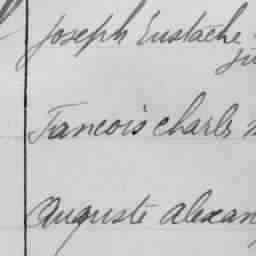 Joseph Eustache
ju
Francois charles
Auguste alexan